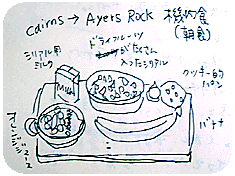 Cairns → Ayers Rock 機内食
(朝食)
ドライフルーツ
がたくさん
入ったシリアル
シリアル用
ミルク
クッキー的
パン
Milk
バナナ
オレンジジュース